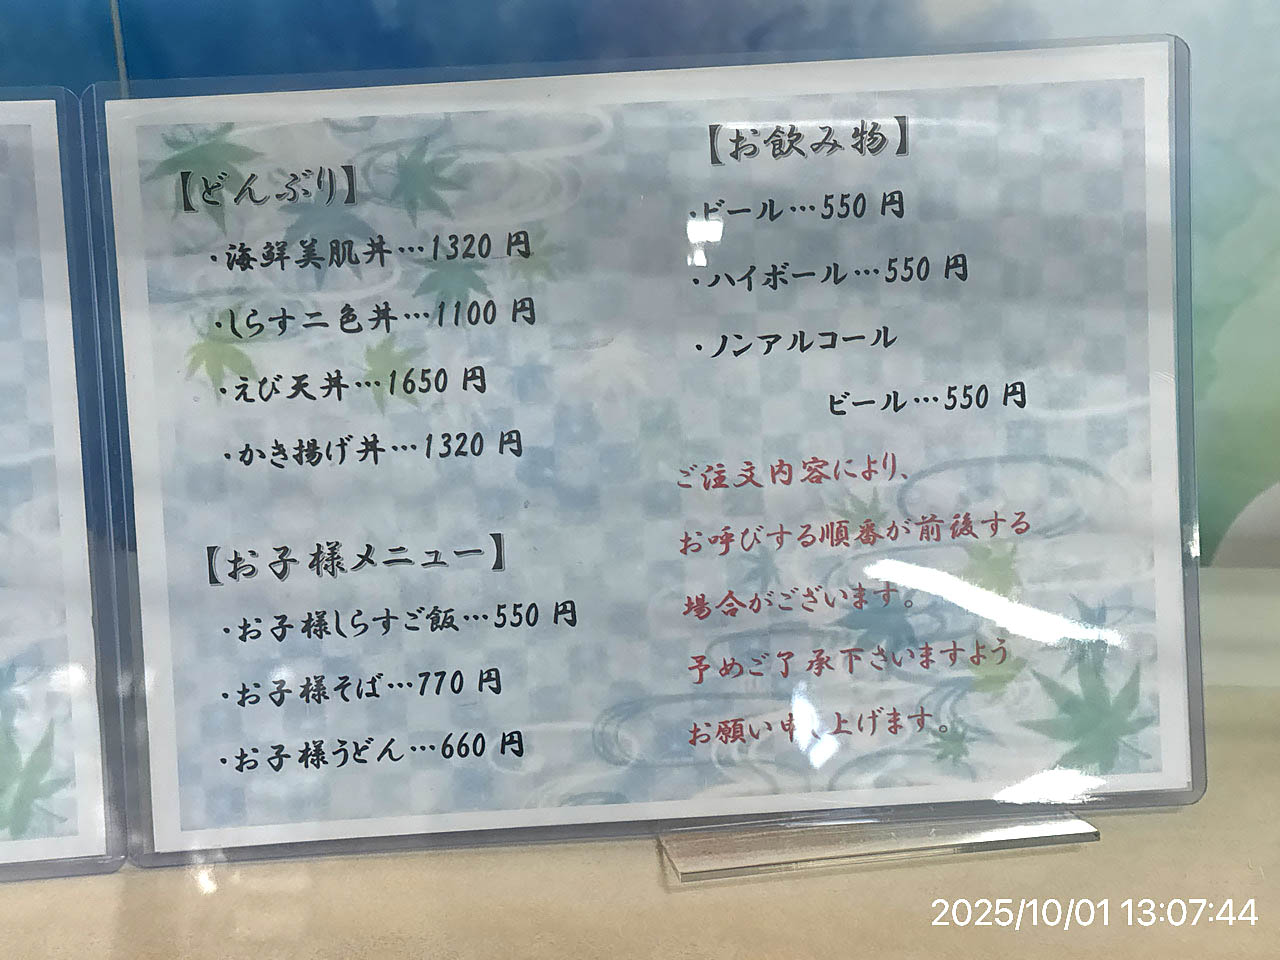 【どんぶり】
・海鮮美肌丼…1320 円
・しらす二色丼…1100 円
・えび天丼…1650 円
・かき揚げ丼…1320 円
【お子様メニュー】
・お子様しらすご飯…550 円
・お子様そば…770 円
・お子様うどん…660 円
【お飲み物】
・ビール…550 円
・ハイボール…550 円
・ノンアルコール
ビール…550 円
ご注文内容により、
お呼びする順番が前後する
場合がございます。
予めご了承下さいますよう
お願い申し上げます。
2025/10/01 13:07:44